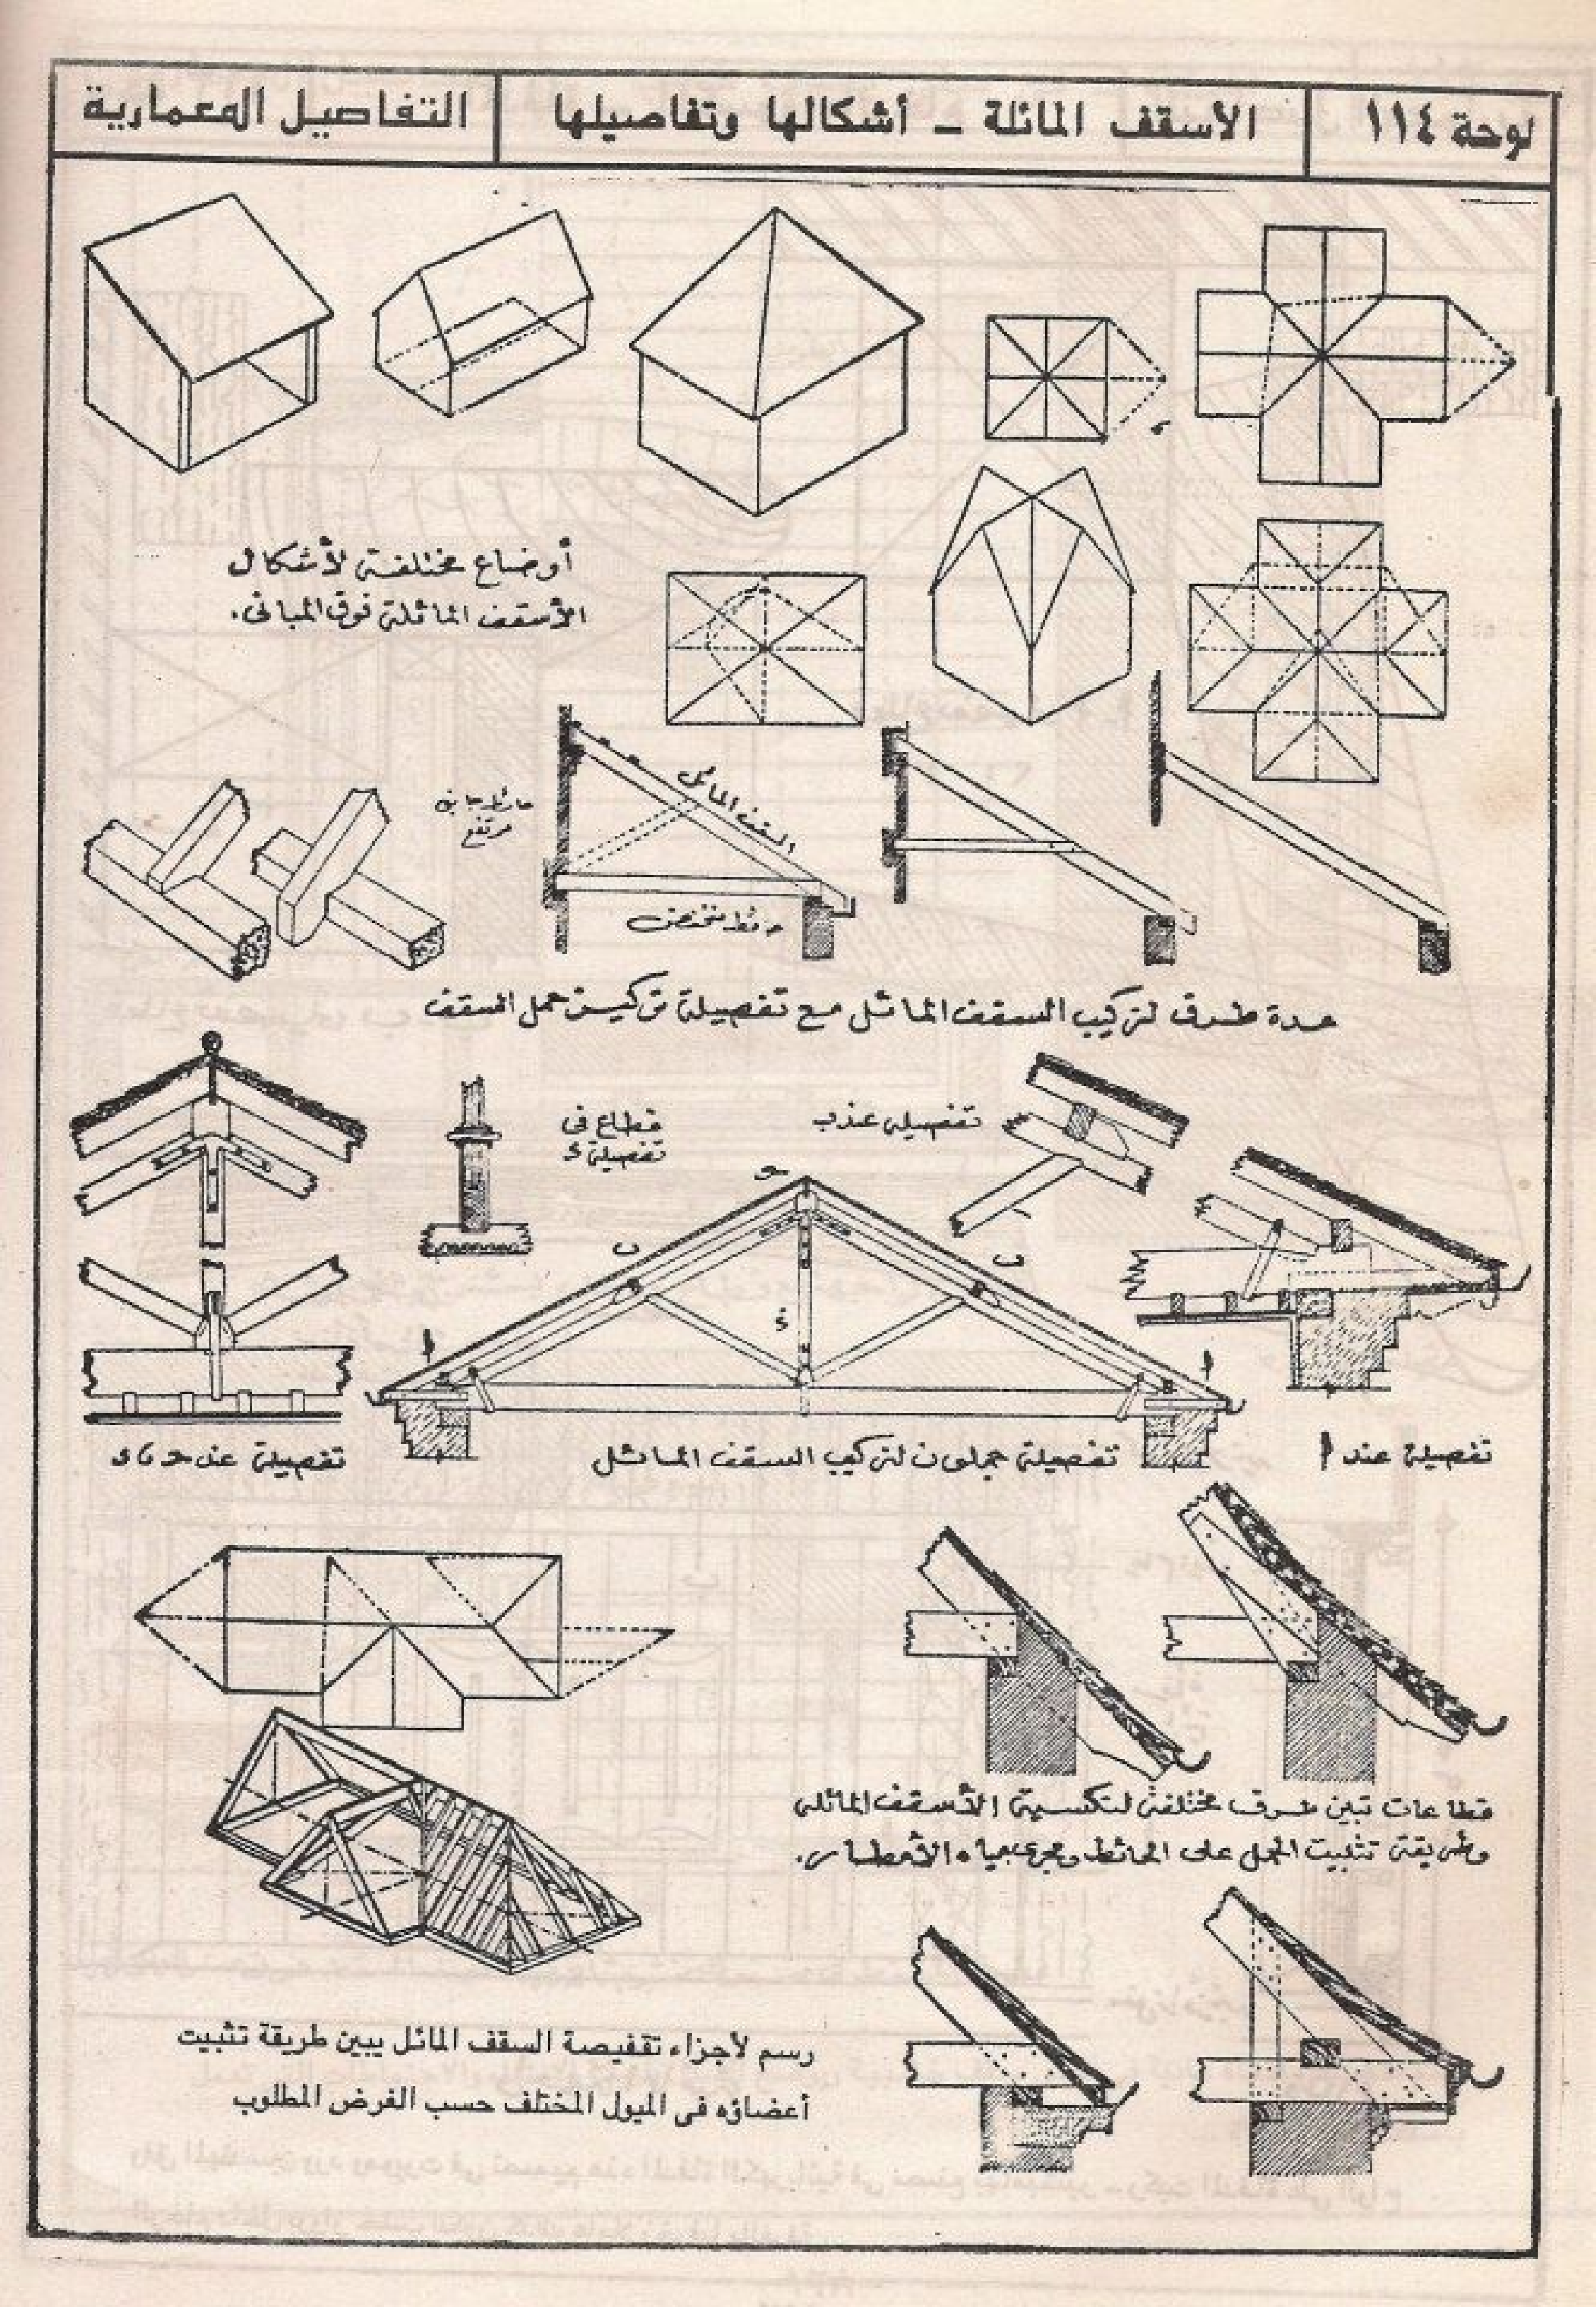 لوحة ١١٤
الأسقف المائلة - أشكالها وتفاصيلها
التفاصيل المعمارية
أوضاع مختلفة لأشكال
الأسقف المائلة فوق المبانى.
السقف المائل
مرتفع
حائط منخفض
عدة طرق لتركيب السقف المائل مع تفصيلة تركيب حمل السقف
قطاع فى
تفصيلة ء
تفصيلة عند ب
ح
ب
ب
ء
أ
أ
تفصيلة عند ح ، ء
تفصيلة جملون لتركيب السقف المائل
تفصيلة عند أ
قطاعات تبين طرق مختلفة لتكسية الأسقف المائلة
وطريقة تثبيت الحمل على الحائط ومجرى مياه الأمطار.
رسم لأجزاء تقفيصة السقف المائل يبين طريقة تثبيت
أعضاؤه فى الميول المختلف حسب الغرض المطلوب